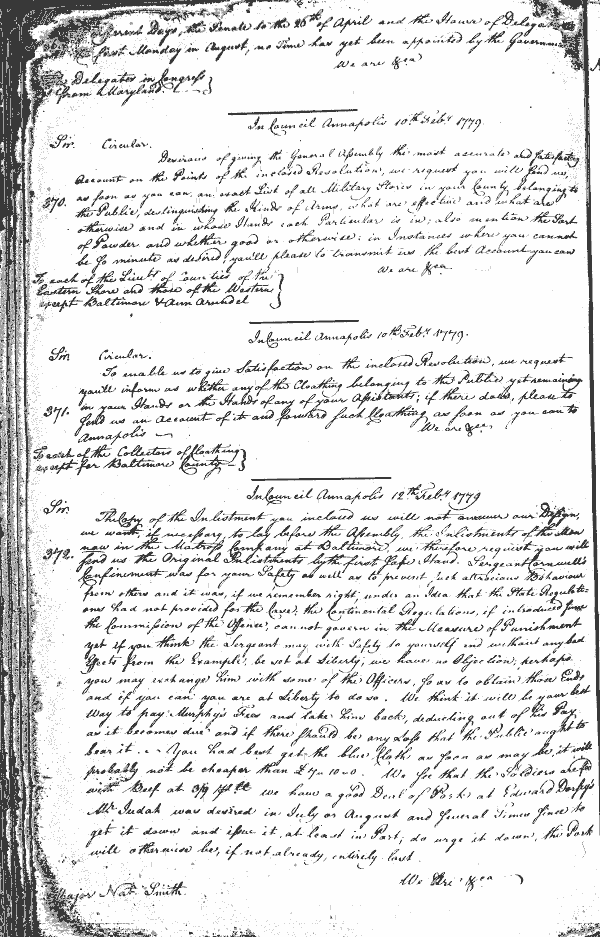 Days, the Senate to the 26th of April and the House of Delega
first Monday in August, no Time has yet been appointed by the Governm
We are &ca
Delegates in Congress
from Maryland.
In Council Annapolis 10th Feby. 1779.
Sir. Circular.
Desirous of giving the General Assembly the most accurate and satisfactory
Account on the Points of the inclosed Resolution, we request you will send us,
as soon as you can, an exact List of all Military Stores in your County belonging to
370. the Public, distinguishing the Kinds of Arms, what are effective and what are
otherwise and in whose Hands each Particular is in; also mention the Sort
of Powder and whether good or otherwise: in Instances where you cannot
be so minute as desired, you'll please to transmit us the best Account you can
We are &ca
To each of the Lieuts. of Counties of the
Eastern Shore and those of the Western
except Baltimore & Ann Arundel
In Council Annapolis 10th Feby. 1779.
Sir Circular.
To enable us to give Satisfaction on the inclosed Resolution, we request
you'll inform us whether any of the Cloathing belonging to the Public yet remaining
371. in your Hands or the Hands of any of your Assistants; if there does, please to
send us an Account of it and forward such Cloathing, as soon as you can to
Annapolis
We are &ca
To each of the Collectors of Cloathing
except for Baltimore County
In Council Annapolis 12th Feby. 1779
Sir.
The Copy of the Inlistment you inclosed us will not answer our Design,
we want, if necessary, to lay before the Assembly, the Inlistments of the Men
372. now in the Matross Company at Baltimore, we therefore request you will
send us the Original Inlistments by the first safe Hand. Sergeant Cornwell's
Confinement was for your Safety as well as to prevent such atrocious Behaviour
from others and it was, if we remember right, under an Idea that the State Regulati-
ons had not provided for the Case; the Continental Regulations, if introduced since
the Commission of the Offence, cannot govern in the Measure of Punishment
yet if you think the Sergeant may with Safety to yourself and without any bad
Effects from the Example, be set at Liberty, we have no Objection, perhaps
you may exchange him with some of the Officers, so as to obtain those Ends
and if you can you are at Liberty to do so. We think it will be your best
Way to pay Murphy's Fees and take him back, deducting out of his Pay,
as it becomes due and if there should be any Loss that the Public ought to
bear it. You had best get the blue Cloth as soon as may be, it will
probably not be cheaper than £7..10..0. We see that the Soldiers are fed
with Beef at 3/9 we have a good Deal of Pork at Edward Dorsey's
Mr. Judah was desired in July or August and several Times since to
get it down and issue it, at least in Part; do urge it down, the Pork
will otherwise be, if not already, entirely lost
We are &ca
Major Nat. Smith